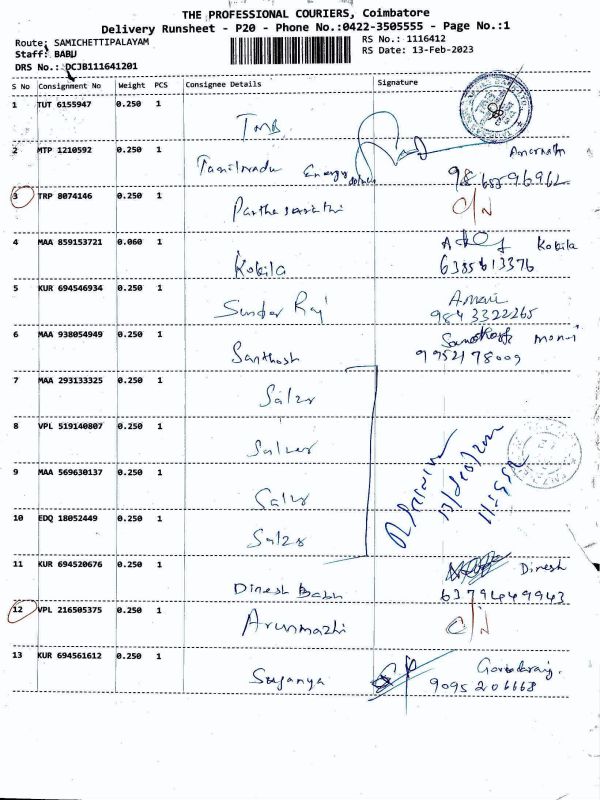 THE PROFESSIONAL COURIERS, Coimbatore
Delivery Runsheet - P20 - Phone No.:0422-3505555 - Page No.:1
Route: SAMICHETTIPALAYAM
RS No.: 1116412
Staff: BABU
RS Date: 13-Feb-2023
DRS No.: DCJB111641201
S No Consignment No Weight PCS Consignee Details Signature
1 TUT 6155947 0.250 1 TMB
2 MTP 1210592 0.250 1 Tamilnadu Energy
3 TRP 8074146 0.250 1 Parthasarathi C/N
4 MAA 859153721 0.060 1 Kokila Kokila
6385613376
5 KUR 694546934 0.250 1 Sundar Raj
9843322265
6 MAA 938054949 0.250 1 Santhosh
9952178009
7 MAA 293133325 0.250 1 Salzr
8 VPL 519140807 0.250 1 Salzer
9 MAA 569630137 0.250 1 Salzr
10 EDQ 18052449 0.250 1 Salzr
11 KUR 694520676 0.250 1 Dinesh Babu Dinesh
6379449943
12 VPL 216505375 0.250 1 Arunmozhi C/N
13 KUR 694561612 0.250 1 Suganya
9095206668